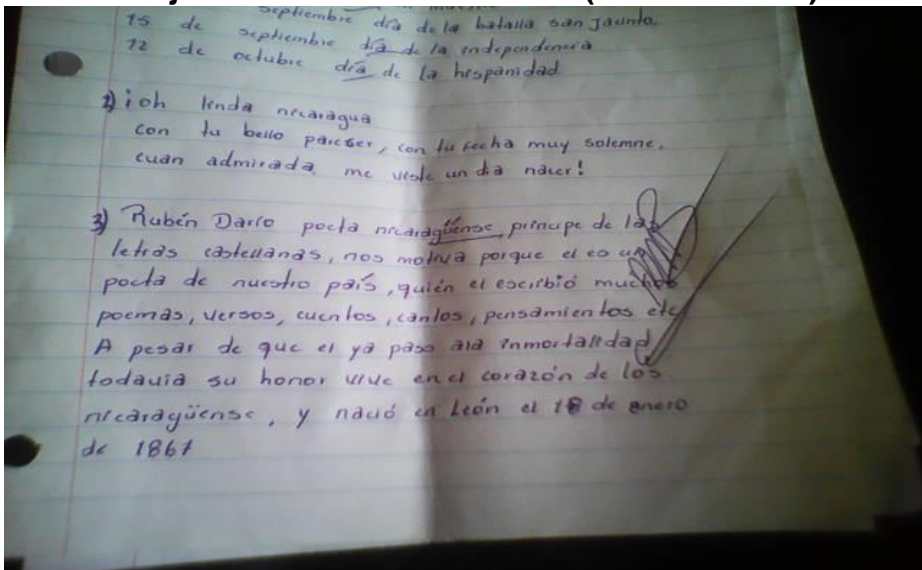 septiembre día de la batalla san Jacinto
15 de septiembre día de la independencia
12 de octubre día de la hispanidad
2) ¡oh linda nicaragua
con tu bello parecer, con tu fecha muy solemne,
cuan admirada, me viste un día nacer!
3) Rubén Darío poeta nicaragüense, principe de las
letras castellanas, nos motiva porque el es un
poeta de nuestro país, quién el escribió muchos
poemas, versos, cuentos, cantos, pensamientos etc
A pesar de que el ya paso ala inmortalidad
todavía su honor vive en el corazón de los
nicaragüense, y nació en León el 18 de enero
de 1867